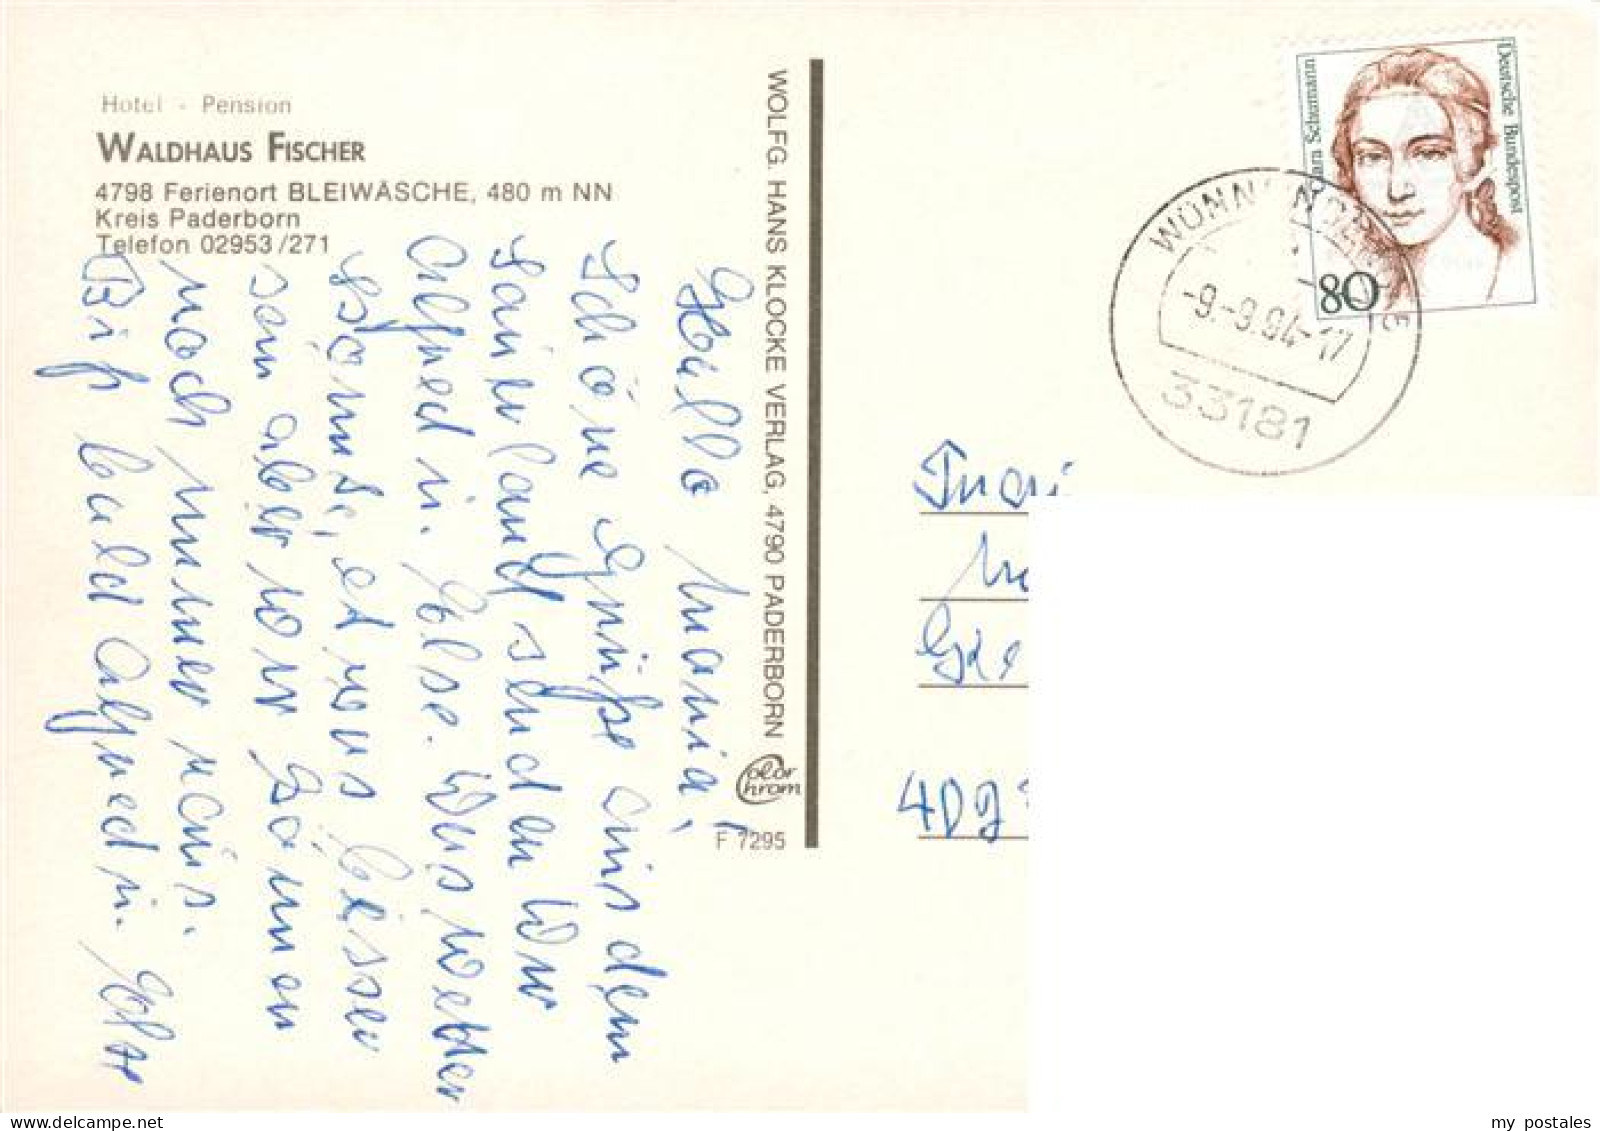 Hotel - Pension
WALDHAUS FISCHER
4798 Ferienort BLEIWÄSCHE, 480 m NN
Kreis Paderborn
Telefon 02953/271
WOLFG. HANS KLOCKE VERLAG, 4790 PADERBORN
Color Chrom
F 7295
Hallo Maria!
Schöne Grüße aus dem
Sauerland senden Dir
Alfred u. Else. Das Wetter
könnte etwas besser
sein aber wir kommen
noch immer raus.
Bis bald Alfred u. Else
Deutsche Bundespost
Clara Schumann
80
WÜNNENBERG
-9.-9.94-17
33181
Frau
my postales